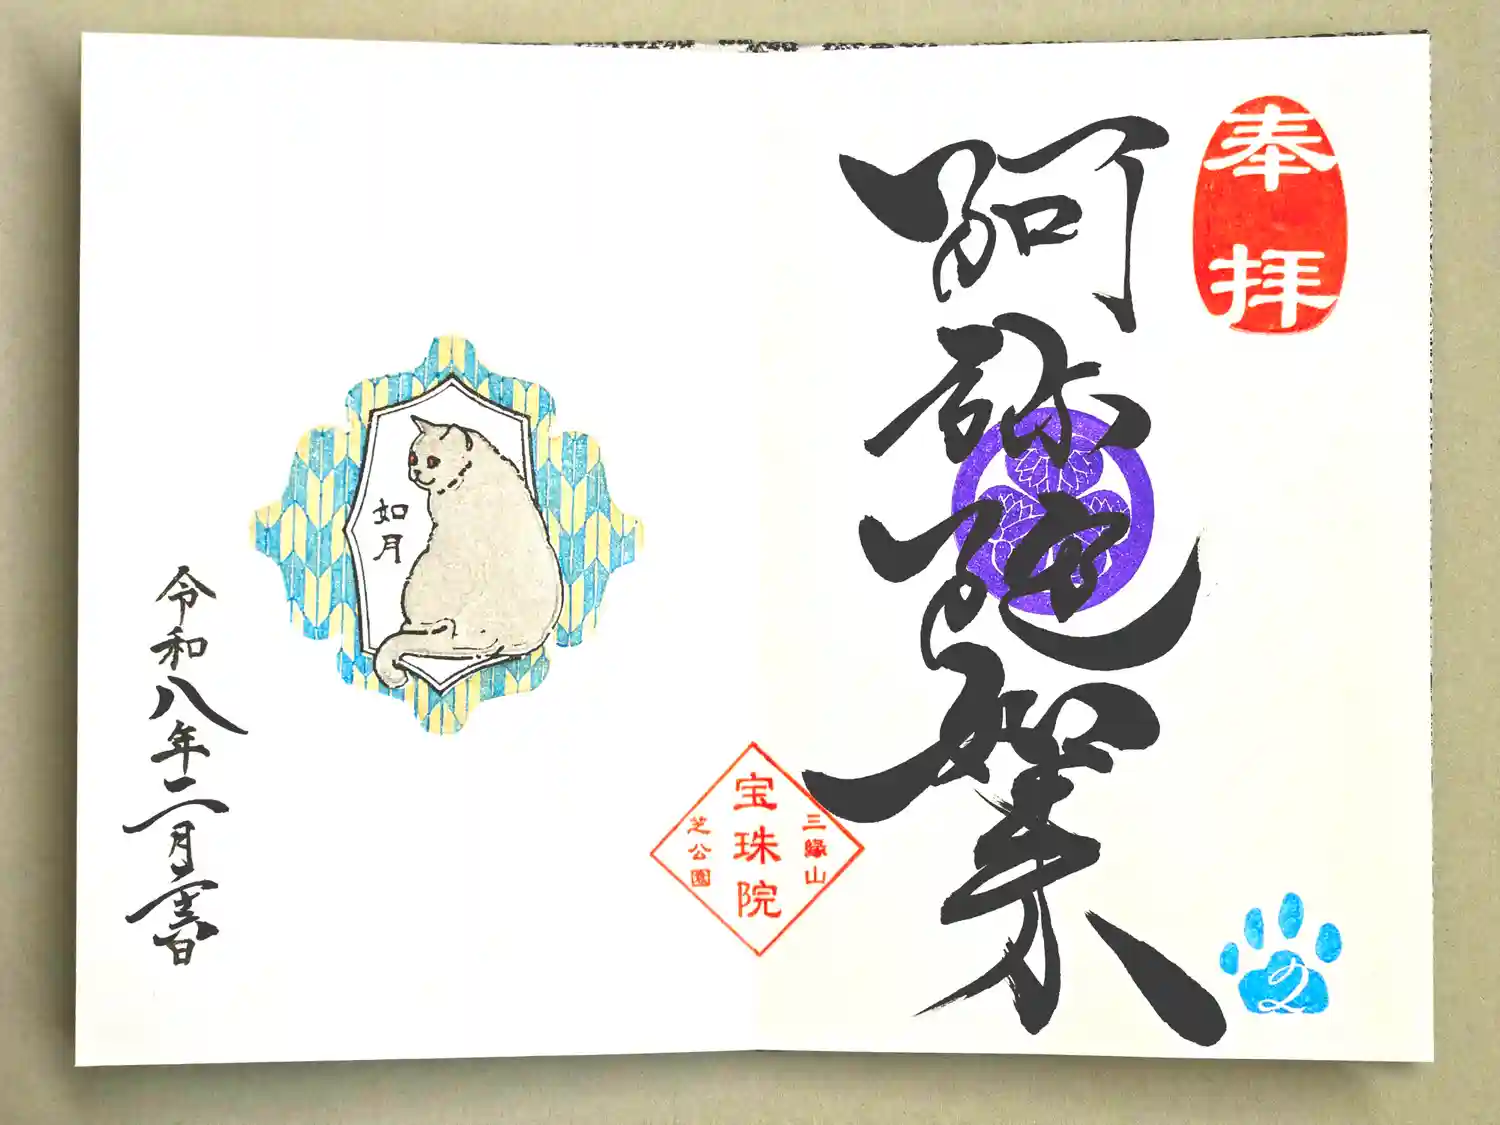 奉拝
阿弥陀如来
三縁山
宝珠院
芝公園
2
如月
令和八年二月日